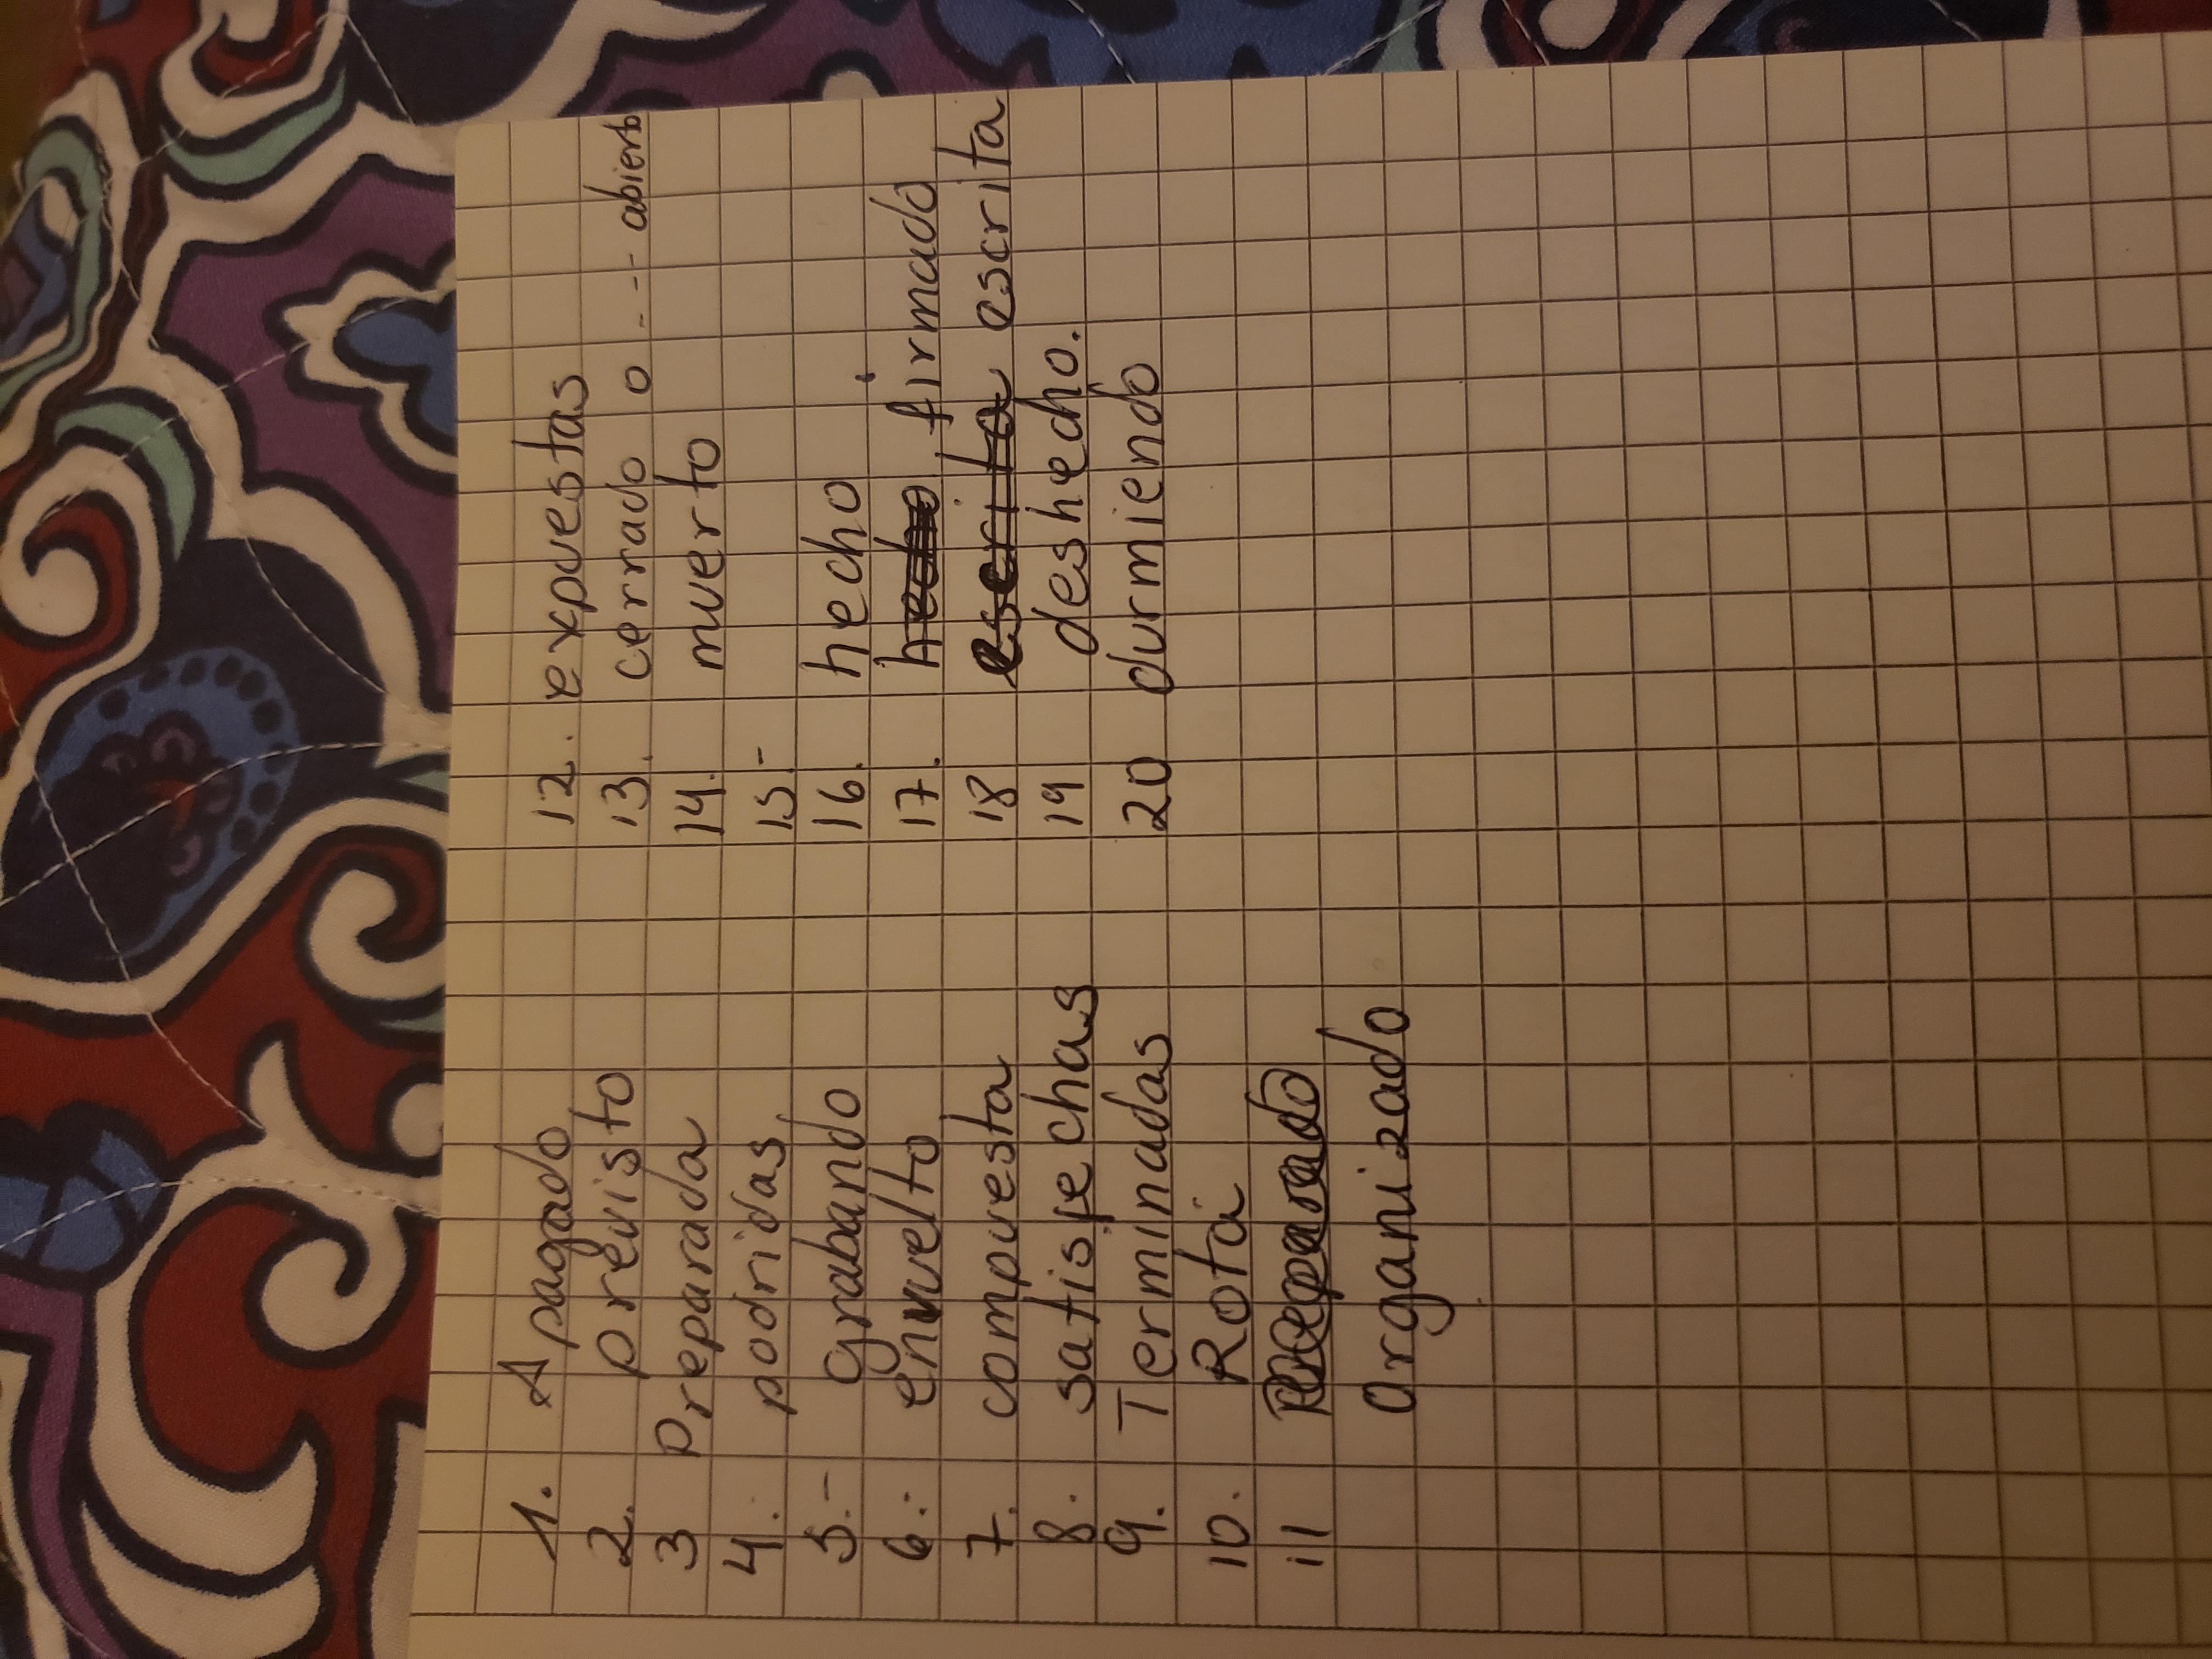 1. Apagado
2. previsto
3 Preparada
4. podridas
5.- grabando
6.- envuelto
7. compuesta
8. satisfechas
9. Terminadas
10. Rota
11
Organizado
12. expuestas
13. cerrado o - - - abierto
14. muerto
15.-
16. hecho
17. hecho firmado
18 escrita escrita
19 deshecho.
20 durmiendo